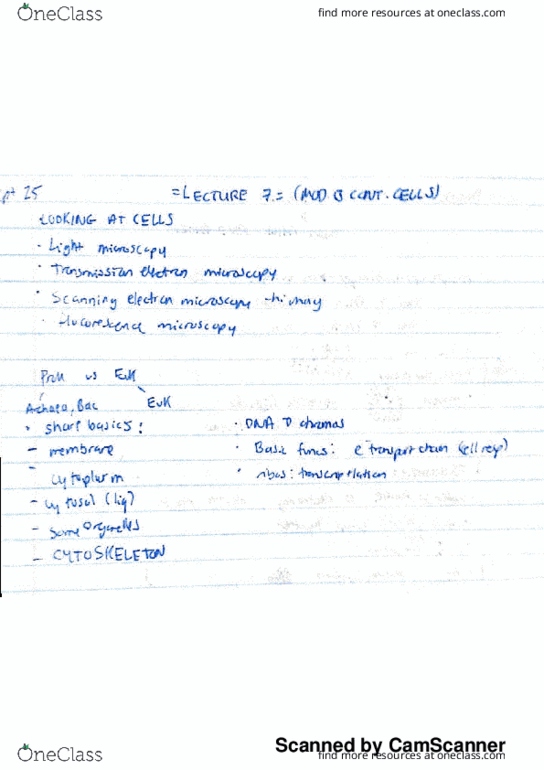 OneClass
find more resources at oneclass.com
pt 25
=LECTURE 7= (MOD 3 CONT. CELLS)
LOOKING AT CELLS
· Light microscopy
· Transmission electron microscopy
· Scanning electron microscopy
· fluorescence microscopy
Prok vs Euk
Achaea, Bac
Euk
· share basics:
- membrane
- cytoplasm
- cytosol (liq)
- some organelles
- CYTOSKELETON
· DNA chromos
· Basic funcs: e transport chain (cell resp)
· ribos:
OneClass
find more resources at oneclass.com
Scanned by CamScanner